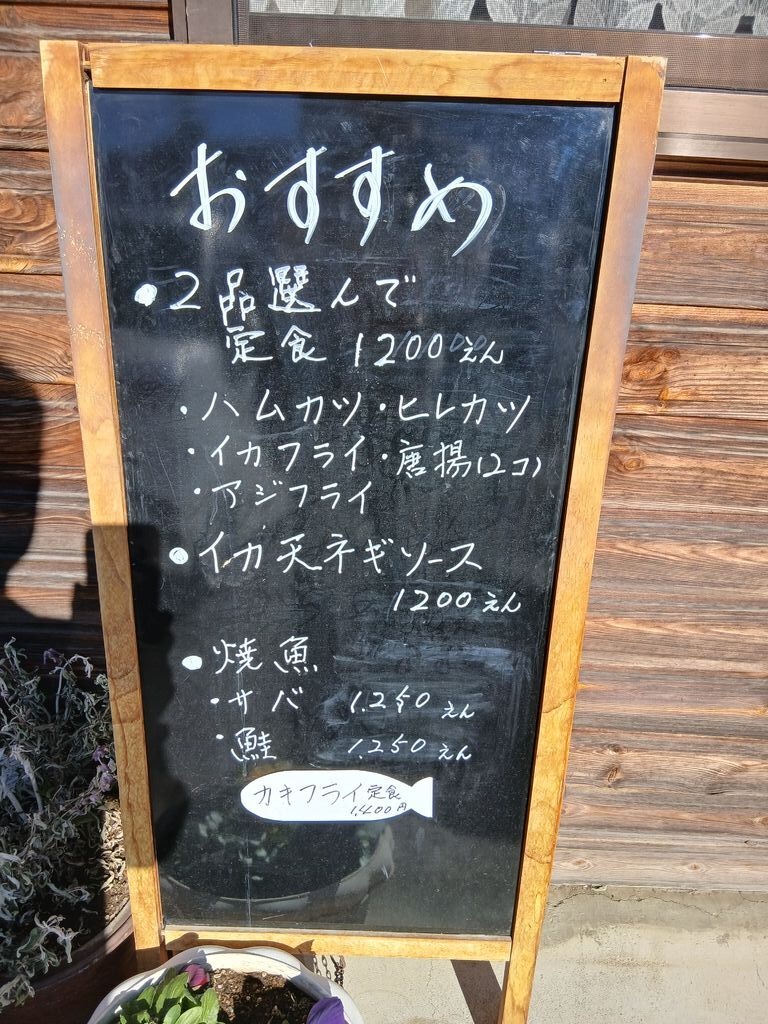 おすすめ
●2品選んで
定食 1200えん
・ハムカツ・ヒレカツ
・イカフライ・唐揚(2コ)
・アジフライ
●イカ天ネギソース
1200えん
●焼魚
・サバ 1.250えん
・鮭 1.250えん
カキフライ定食
1,400円